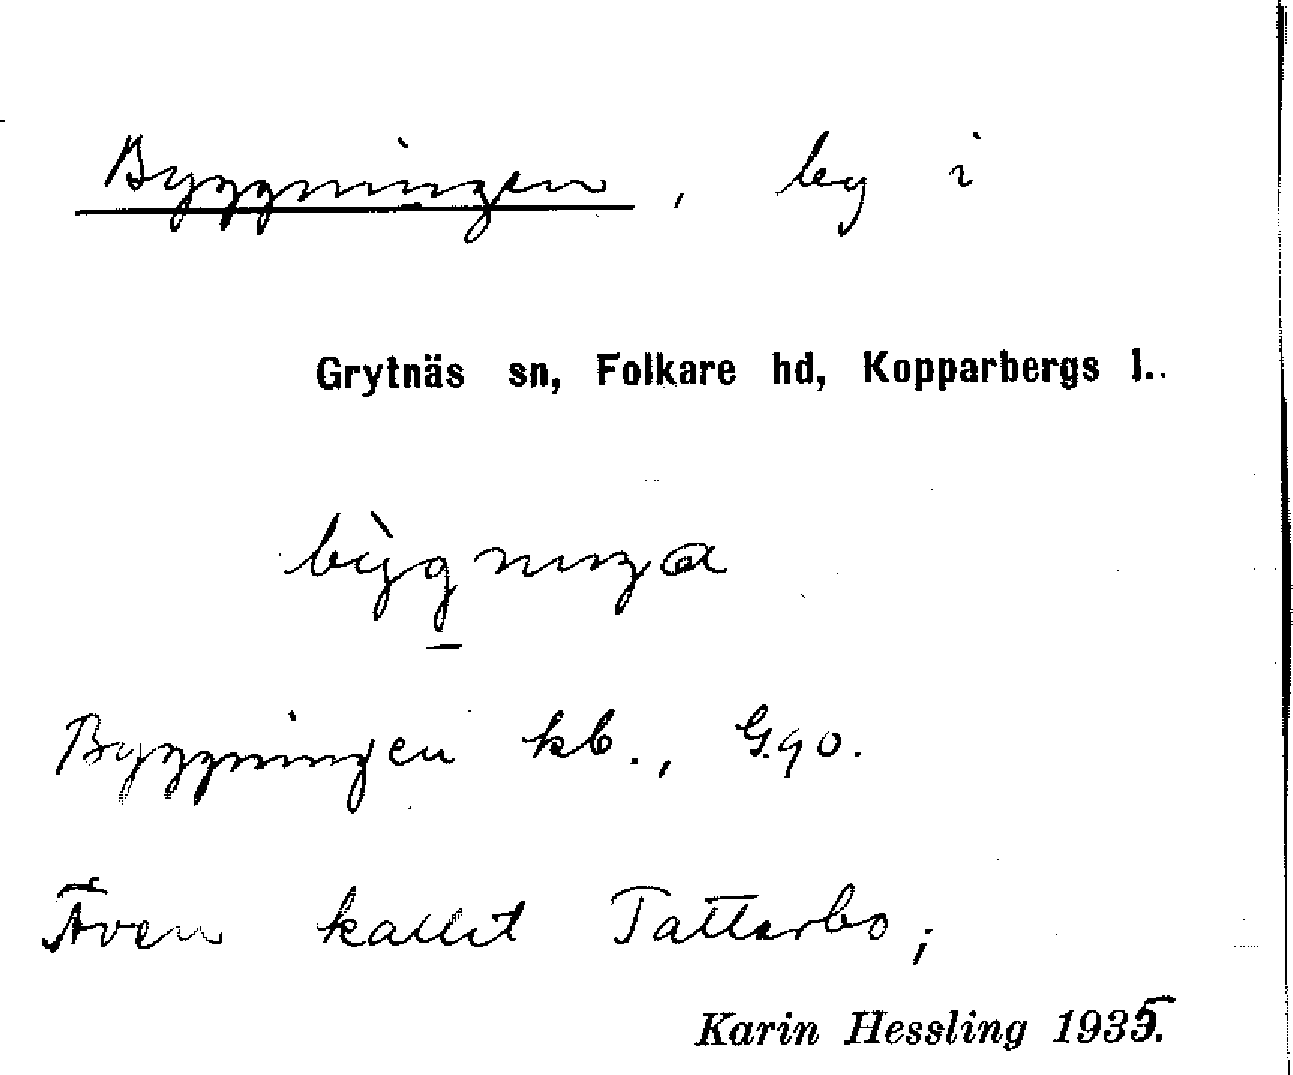 Byggningen, by i
Grytnäs sn, Folkare hd, Kopparbergs l.
Byggningen kb., G.qo.
Även kallet Tattarbo;
Karin Hessling 1935.